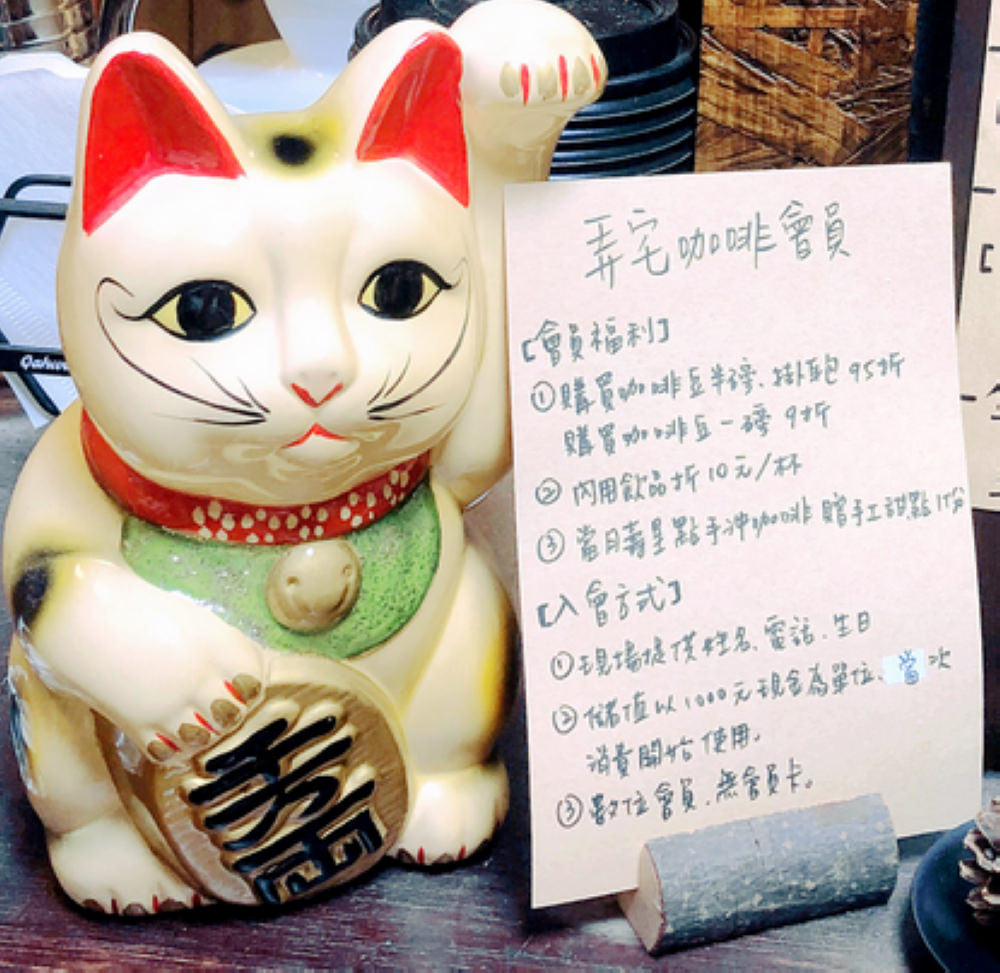 弄宅咖啡會員
[會員福利]
① 購買咖啡豆半磅、掛耳包 95折
購買咖啡豆一磅 9折
② 內用飲品折10元/杯
③ 當月壽星點手沖咖啡 贈手工甜點1份
[入會方式]
① 現場提供姓名、電話、生日
② 儲值以1000元現金為單位、當次
消費開始使用。
③ 數位會員、無會員卡。